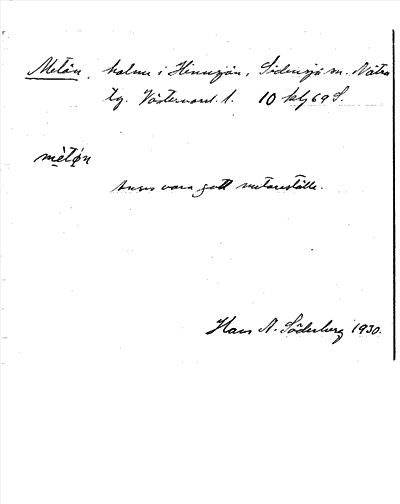 Metön, holme i Hinnsjön, Sidensjö sn. Nätra
tg. Västernorrl. l. 10 klj 69 S.
mètø̀n
Anses vara gott metareställe.
Hans N. Söderberg 1930.